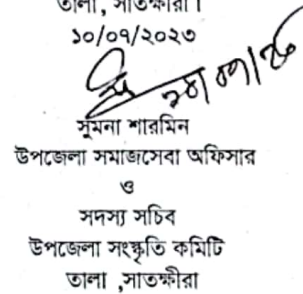 তালা, সাতক্ষীরা।
১০/০৭/২০২৩
সুমনা শারমিন
উপজেলা সমাজসেবা অফিসার
ও
সদস্য সচিব
উপজেলা সংস্কৃতি কমিটি
তালা ,সাতক্ষীরা